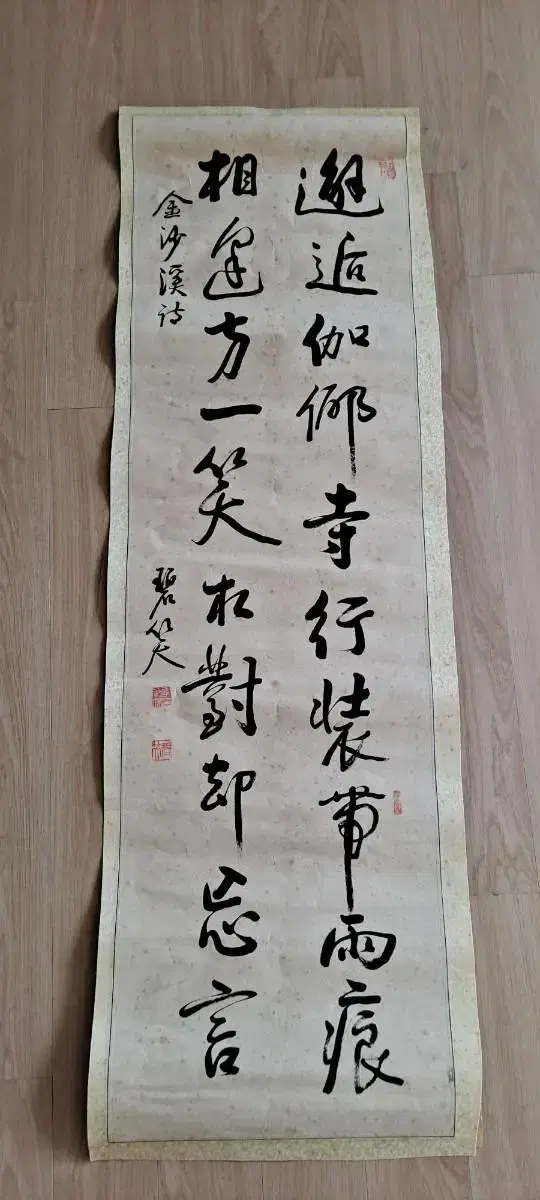 邂逅伽倻寺行装帶雨痕
相逢方一笑相對却忘言
金沙溪诗
碧笑